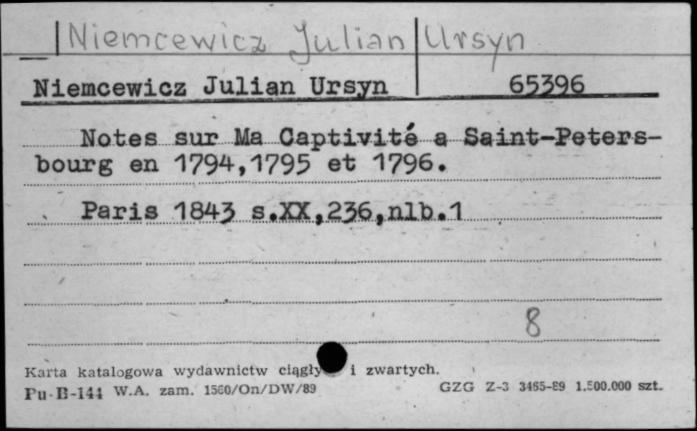 Niemcewicz Julian Ursyn
Niemcewicz Julian Ursyn 65396
Notes sur Ma Captivité a Saint-Peters-
bourg en 1794,1795 et 1796.
Paris 1843 s.XX,236,nlb.1
8
Karta katalogowa wydawnictw ciągły i zwartych.
Pu-B-144 W.A. zam. 1560/On/DW/89 GZG Z-3 3465-89 1.500.000 szt.